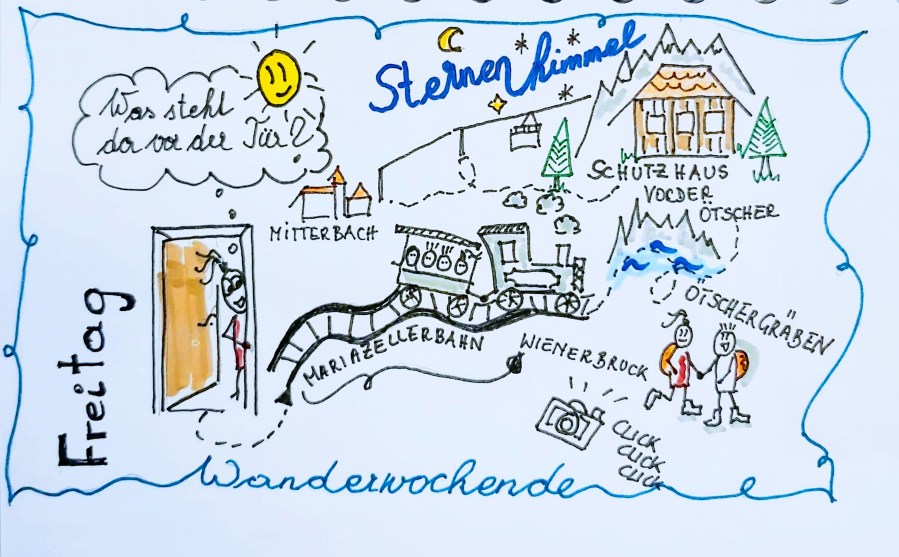 Sternenhimmel
Was steht
da vor der Tür?
SCHUTZHAUS
VORDER
ÖTSCHER
MITTERBACH
ÖTSCHERGRÄBEN
MARIAZELLERBAHN
WIENERBRUCK
Freitag
CLICK
CLICK
CLICK
Wanderwochende